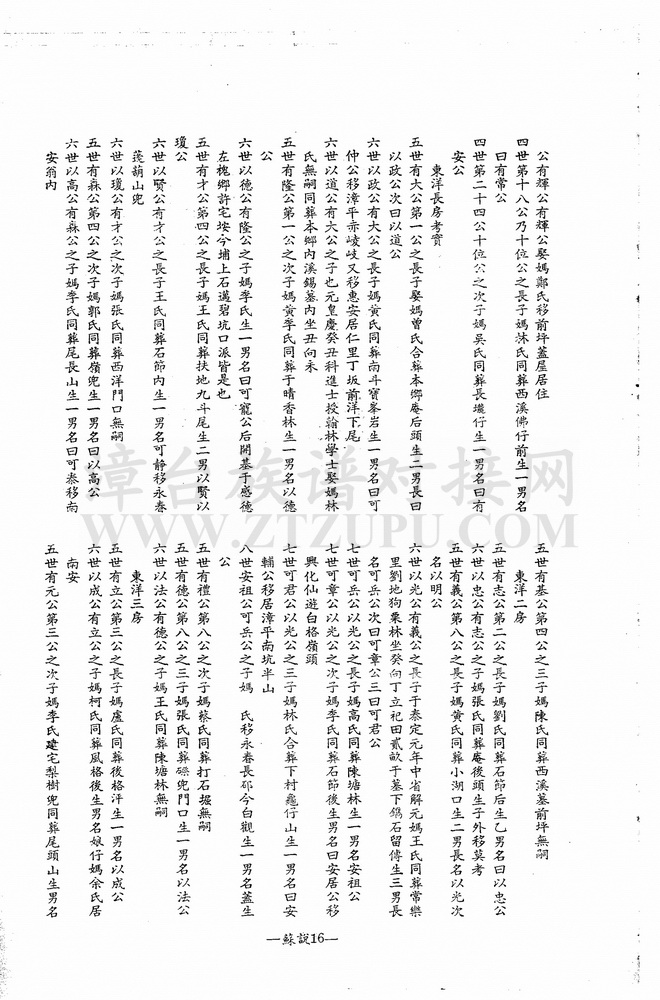 公有輝公有輝公娶媽鄭氏移前坪蓋屋居住
四世第十八公乃十位公之長子媽林氏同葬西溪佛仔前生一男名
曰有常公
四世第二十四公十位公之次子媽吳氏同葬長壠仔生一男名曰有
安公
東洋長房考實
五世有大公第一公之長子娶媽曾氏合葬本鄉庵后頭生二男長曰
以政公次曰以道公
六世以政公有大公之長子媽黃氏同葬南斗寶峯岩生一男名曰可
仲公移漳平赤崚岐又移惠安居仁里丁坂前洋下尾
六世以道公有六公之子也元皇慶癸丑科進士授翰林學士娶媽林
氏無嗣同葬本鄉內溪錫墓內坐丑向未
五世有隆公第一公之次子媽黃李氏同葬于晴香林生一男名以德
公
六世以德公有隆公之子媽李氏生一男名曰可寵公后開基于感德
左槐鄉許宅垵今埔上石邁碧坑口派皆是也
五世有才公第四公之長子媽王氏同葬扶地九斗尾生二男以賢以
瓊公
六世以賢公有才公之長子王氏同葬石節內生一男名可靜移永春
蓬葫山兜
六世以瓊公有才公之次子媽張氏同葬西洋門口無嗣
五世有森公第四公之次子媽郭氏同葬嶺兜生一男名曰以高公
六世以高公有森公之子媽李氏同葬尾長山生一男名曰可泰移南
安翁內
五世有基公第四公之三子媽陳氏同葬西溪墓前坪無嗣
東洋二房
五世有志公第二公之長子媽劉氏同葬石節后生乙男名曰以忠公
六世以忠公有志公之子媽張氏同葬庵後頭生子外移莫考
五世有義公第八公之長子媽黃氏同葬小湖口生二男長名以光次
名以明公
六世以光公有義公之長子于泰定元年中省解元媽王氏同葬常樂
里劉地狗粟林坐癸向丁立祀田貳畝于墓下鐫石留傳生三男長
名可兵公次曰可章公三曰可君公
七世可兵公以光公之長子媽高氏同葬陳塘林生一男名安祖公
七世可章公以光公之次子媽李氏同葬石節後生男名曰安居公移
興化仙遊白格嶺頭
七世可君公以光公之三子媽林氏合葬下村龜仔山生一男名曰安
輔公移居漳平南坑半山
八世安祖公可兵公之子媽 氏移永春長邱今白觀生一男名蓋生
公
五世有禮公第八公之次子媽蔡氏同葬打石堀無嗣
五世有德公第八公之三子媽張氏同葬磜兜門口生一男名以法公
六世以法公有德公之子媽王氏同葬陳塘林無嗣
東洋三房
五世有立公第三公之長子媽盧氏同葬後格汗生一男名以成公
六世以成公有立公之子媽柯氏同葬風格後生男名娘仔媽余氏居
南安
五世有元公第三公之次子媽李氏建宅梨樹兜同葬尾頭山生男名
—蘇說16—
章台族谱对接网
WWW.ZTZUPU.COM